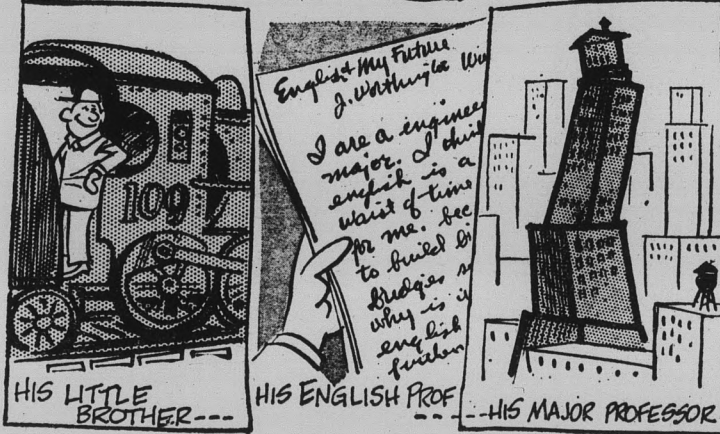 109
HIS LITTLE
BROTHER---
English & My Future
J. Worthington
I are a enginee
major. I think
english is a
waist of time
for me. bec
to build bi
Bridges
why is it
english
further
HIS ENGLISH PROF
-----HIS MAJOR PROFESSOR